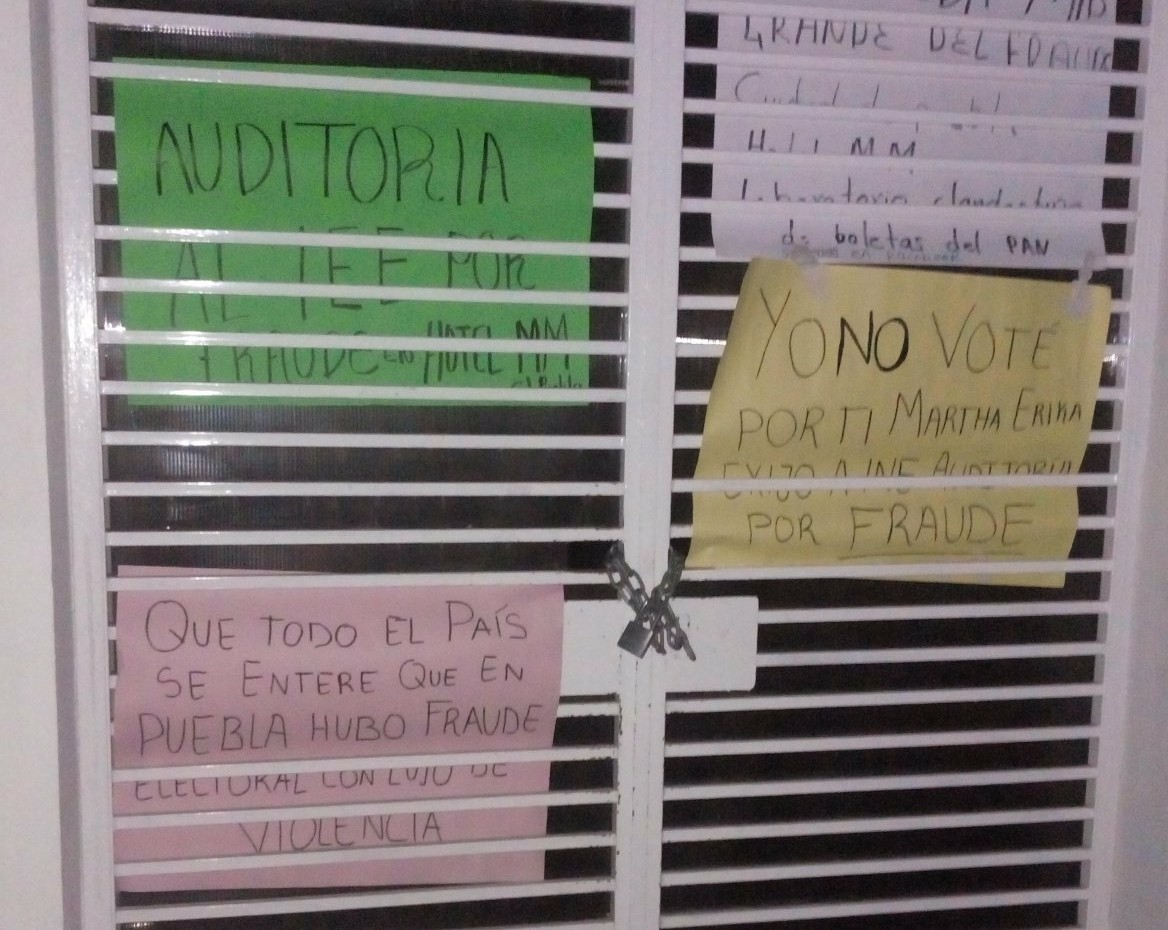 AUDITORIA
AL TEE POR
FRAUDE EN HOTEL MM
GRANDE DEL FRAUDE
Laboratorio clandestino
de boletas del PAN
YO NO VOTÉ
POR TI MARTHA ERIKA
EXIJO A INE AUDITORIA
POR FRAUDE
QUE TODO EL PAÍS
SE ENTERE QUE EN
PUEBLA HUBO FRAUDE
ELECTORAL CON LUJO DE
VIOLENCIA